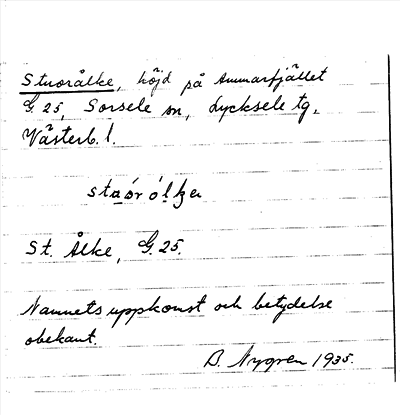 Stuorålke, höjd på Ammarfjället
G 25, Sorsele sn, Lycksele tg,
Västerb. l.
St. Ålke, G. 25.
Namnets uppkomst och betydelse
obekant.
B. Nygren 1935.